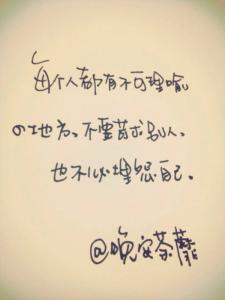 每个人都有不可理喻
的地方。不要苛求别人、
也不必埋怨自己。
@晚安荼蘼